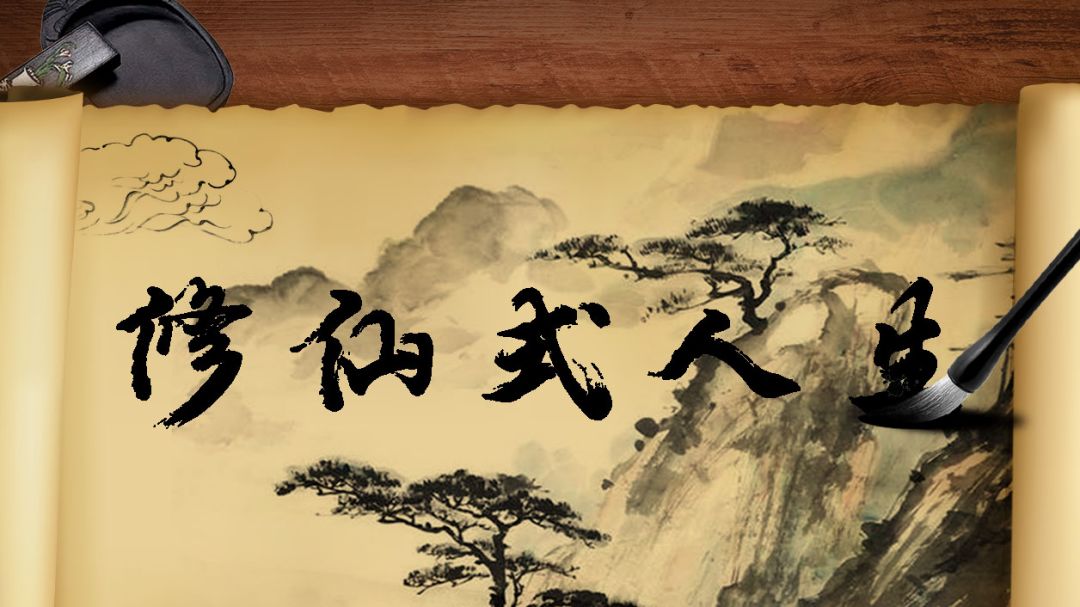 修仙式人生